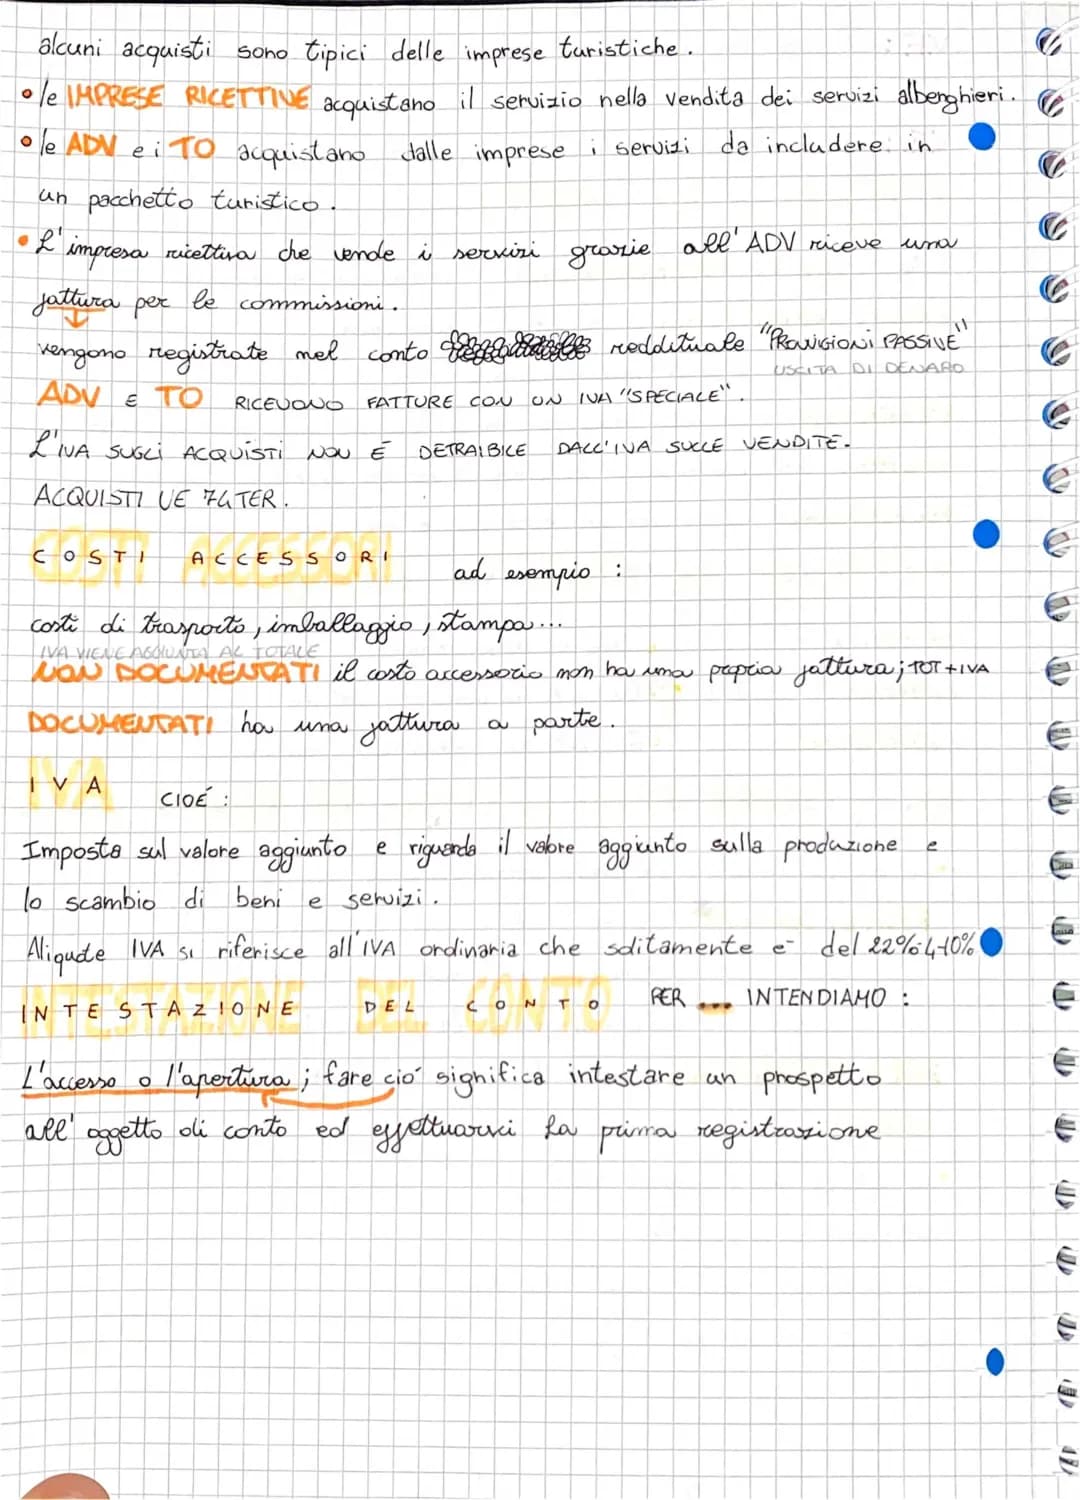 alcuni acquisti sono tipici delle imprese turistiche.
• le IMPRESE RICETTIVE acquistano il servizio nella vendita dei servizi alberghieri.
• le ADV e i TO acquistano dalle imprese i servizi da includere in
un pacchetto turistico.
• L'impresa ricettiva che vende i servizi grazie all'ADV riceve una
fattura per le commissioni.
vengono registrate nel conto reddituale "PROVIGIONI PASSIVE"
USCITA DI DENARO
ADV E TO RICEVONO FATTURE CON UN IVA "SPECIALE".
L'IVA SUGLI ACQUISTI NON É DETRAIBILE DALL'IVA SULLE VENDITE.
ACQUISTI UE 74TER.
COSTI ACCESSORI ad esempio :
costi di trasporto, imballaggio, stampa...
IVA VIENE AGGIUNTA AL TOTALE
NON DOCUMENTATI il costo accessorio non ha una propria fattura; TOT+IVA
DOCUMENTATI ha una fattura a parte.
IVA CIOÉ :
Imposta sul valore aggiunto e riguarda il valore aggiunto sulla produzione e
lo scambio di beni e servizi.
Aliquote IVA si riferisce all'IVA ordinaria che solitamente e- del 22%-4-10%
INTESTAZIONE DEL CONTO PER ... INTENDIAMO :
L'accesso o l'apertura ; fare ció significa intestare un prospetto
all'oggetto di conto ed effettuarvi la prima registrazione